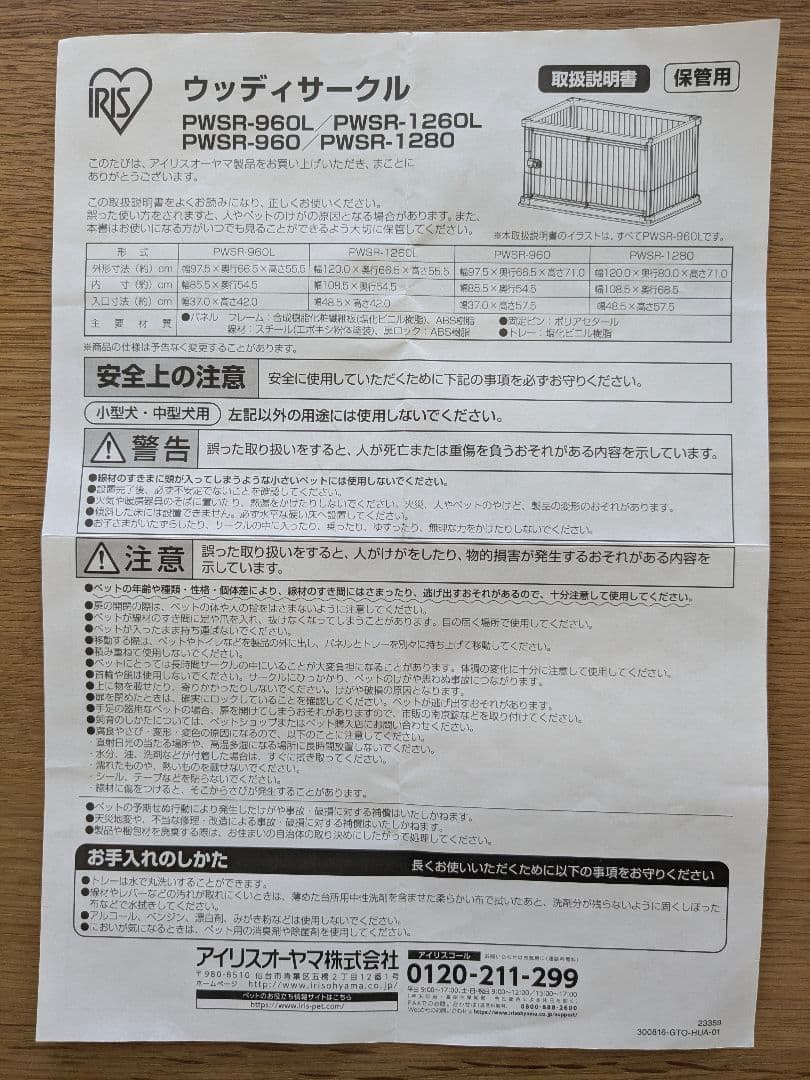 IRIS
ウッディサークル
取扱説明書
保管用
PWSR-960L/PWSR-1260L
PWSR-960/PWSR-1280
このたびは、アイリスオーヤマ製品をお買い上げいただき、まことに
ありがとうございます。
この取扱説明書をよくお読みになり、正しくお使いください。
誤った使い方をされますと、人やペットのけがの原因となる場合があります。また、
本書はお使いになる方がいつでも見ることができるよう大切に保管してください。
※本取扱説明書のイラストは、すべてPWSR-960Lです。
形式 PWSR-960L PWSR-1260L PWSR-960 PWSR-1280
外形寸法(約)cm 幅97.5×奥行66.5×高さ55.5 幅120.0×奥行66.5×高さ55.5 幅97.5×奥行66.5×高さ71.0 幅120.0×奥行80.0×高さ71.0
内寸(約)cm 幅85.5×奥行54.5 幅108.5×奥行54.5 幅85.5×奥行54.5 幅108.5×奥行68.5
入口寸法(約)cm 幅37.0×高さ42.0 幅48.5×高さ42.0 幅37.0×高さ57.5 幅48.5×高さ57.5
主要材質 ●パネル フレーム:合成樹脂化粧繊維板(塩化ビニル樹脂)、ABS樹脂 ●固定ピン:ポリアセタール
線材:スチール(エポキシ粉体塗装)、扉ロック:ABS樹脂 ●トレー:塩化ビニル樹脂
※商品の仕様は予告なく変更することがあります。
安全上の注意 安全に使用していただくために下記の事項を必ずお守りください。
小型犬・中型犬用 左記以外の用途には使用しないでください。
警告 誤った取り扱いをすると、人が死亡または重傷を負うおそれがある内容を示しています。
●線材のすきまに頭が入ってしまうような小さいペットには使用しないでください。
●設置完了後、必ず不安定でないことを確認してください。
●火気や暖房器具のそばに置いたり、熱湯をかけたりしないでください。火災、人やペットのやけど、製品の変形のおそれがあります。
●傾斜した床には設置できません。必ず水平な硬い床へ設置してください。
●お子さまがいたずらしたり、サークルの中に入ったり、乗ったり、ゆすったり、無理な力をかけたりしないでください。
注意 誤った取り扱いをすると、人がけがをしたり、物的損害が発生するおそれがある内容を
示しています。
●ペットの年齢や種類・性格・個体差により、線材のすき間にはさまったり、逃げ出すおそれがあるので、十分注意して使用してください。
●扉の開閉の際は、ペットの体や人の指をはさまないように注意してください。
●ペットが線材のすき間に足や爪を入れ、抜けなくなってしまうことがあります。目の届く場所で使用してください。
●ペットが入ったまま持ち運ばないでください。
●移動する際は、ペットやトイレなどを製品の外に出し、パネルとトレーを別々に持ち上げて移動してください。
●積み重ねて使用しないでください。
●ペットにとっては長時間サークルの中にいることが大変負担になることがあります。体調の変化に十分に注意して使用してください。
●首輪や鎖は使用しないでください。サークルにひっかかり、ペットのけがや思わぬ事故につながります。
●上に物を載せたり、寄りかかったりしないでください。けがや破損の原因となります。
●扉を閉めたときは、確実にロックしていることを確認してください。ペットが逃げ出すおそれがあります。
●手足の器用なペットの場合、扉を開けてしまうおそれがありますので、市販の南京錠などを取り付けてください。
●飼育のしかたについては、ペットショップまたはペット購入店にお問い合わせください。
●腐食やさび・変形・変色の原因になるので、以下のことに注意してください。
・直射日光の当たる場所や、高温多湿になる場所に長時間放置しないでください。
・水分、油、洗剤などが付着した場合は、すぐに拭き取ってください。
・濡れたものや、熱いものを載せないでください。
・シール、テープなどを貼らないでください。
・線材に傷をつけると、そこからさびが発生することがあります。
●ペットの予期せぬ行動により発生したけがや事故・破損に対する補償はいたしかねます。
●天災地変や、不当な修理・改造による事故・破損に対する補償はいたしかねます。
●製品や梱包材を廃棄する際は、お住まいの自治体の取り決めにしたがって処理してください。
お手入れのしかた 長くお使いいただくために以下の事項をお守りください
●トレーは水で丸洗いすることができます。
●線材やレバーなどの汚れが取れにくいときは、薄めた台所用中性洗剤を含ませた柔らかい布で拭いたあと、洗剤分が残らないように固くしぼった
布などで水拭きしてください。
●アルコール、ベンジン、漂白剤、みがき粉などは使用しないでください。
●においが気になるときは、ペット用の消臭剤や除菌剤を使用してください。
アイリスオーヤマ株式会社
〒980-8510 仙台市青葉区五橋2丁目12番1号
ホームページ http://www.irisohyama.co.jp/
ペットのお役立ち情報サイトはこちら
https://www.iris-pet.com/
アイリスコール お問い合わせはお気軽に(通話料無料)
0120-211-299
平日9:00～17:00、土・日・祝日9:00～12:00/13:00～17:00
FAXでのお問い合わせは(送信料無料) 0800-888-2600
Webからのお問い合わせはhttps://www.irisohyama.co.jp/support/
23359
300816-GTO-HUA-01